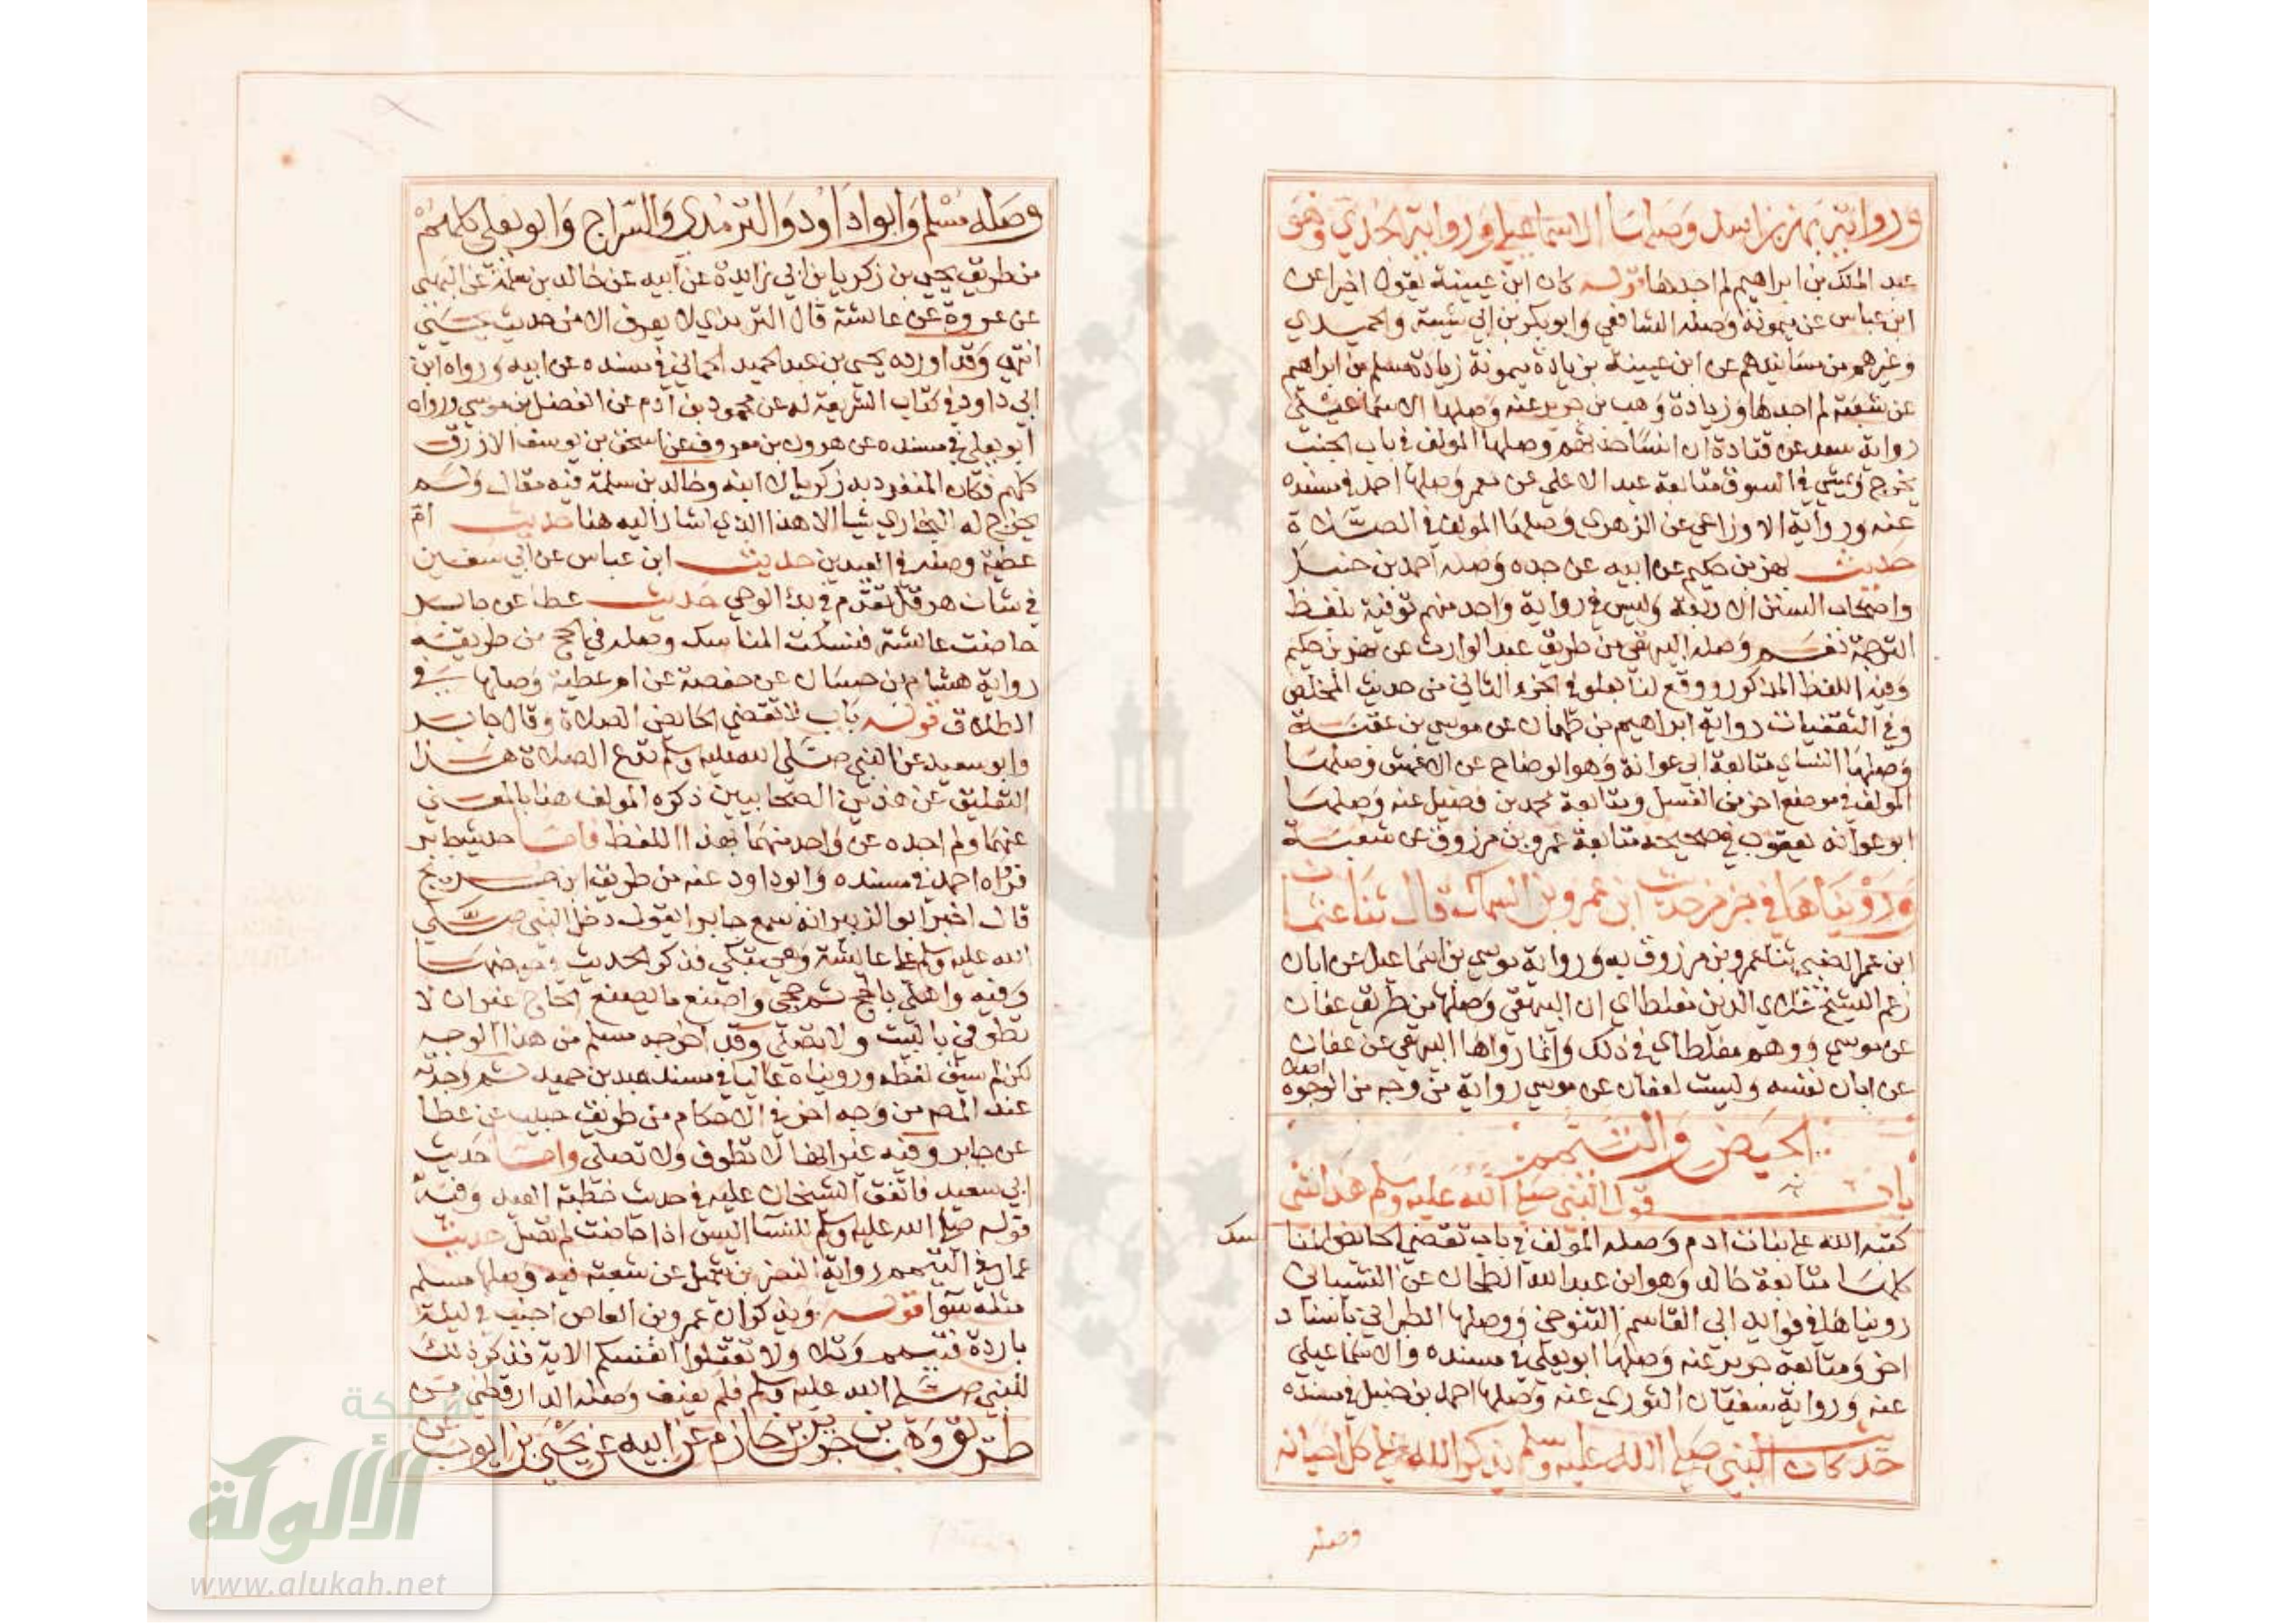 ورواية بهز بن اسد وصلها الاسماعيلي ورواية الجدي وهو
عبد الملك بن ابراهيم لم اجدها قوله كان ابن عيينة يقول اخيرا عن
ابن عباس عن ميمونة وصله الشافعي وابو بكر بن ابي شيبة والحميدي
وغيرهم من مسانيدهم عن ابن عيينة بزيادة ميمونة زيادة مسلم بن ابراهيم
عن شعبة لم اجدها وزيادة وهب بن جرير عنه وصلها الاسماعيلي
رواية سعد عن قتادة ان انسا حدثهم وصلها المولف في باب الجنب
يخرج ويمشي في السوق متابعة عبد الاعلي عن معمر وصلها احمد في مسنده
عنه ورواية الاوزاعي عن الزهري وصلها المولف في الصلاة
حديث بهز بن حكيم عن ابيه عن جده وصله احمد بن حنبل
واصحاب السنن الاربعة وليس في رواية واحد منهم توفية بلفظ
الترجمة نعم وصله البيهقي من طريق عبد الوارث عن بهز بن حكيم
وفيه اللفظ المذكور ووقع لنا بعلو في الجزء الثاني من حديث المخلص
وفي الثقفيات رواية ابراهيم بن طهمان عن موسي بن عقبة
وصلها النساي متابعة ابي عوانة وهو الوضاح عن الاعمش وصلها
المولف في موضع اخر من الغسل ومتابعة محمد بن فضيل عنه وصلها
ابو عوانه يعقوب في صحيحه متابعة عمرو بن مرزوق عن شعبة
ورويناها في جزء من حديث ابن عمرو بن السماك قال ثنا عثمان
ابن عمر الضبي ثنا عمرو بن مرزوق به ورواية موسي بن اسماعيل عن ابان
زعم الشيخ علاي الدين مغلطاي ان البيهقي وصلها من طريق عفان
عن موسي ووهم مغلطاي في ذلك وانما رواها البيهقي عن عفان
عن ابان نفسه وليست لعفان عن موسي رواية من وجه من الوجوه
اصلا
الحيض والتيمم
باب قول النبي صلي الله عليه وسلم هذا شي
كتبه الله علي بنات ادم وصله المولف في باب تقضي الحائض المنا
سك
كلها متابعة خالد وهو ابن عبد الله الطحان عن الشيباني
رويناها في فوايد ابي القاسم التنوخي ووصلها الطبراني باسناد
اخر ومتابعة جرير عنه وصلها ابو يعلي في مسنده والاسماعيلي
عنه ورواية سفيان الثوري عنه وصلها احمد بن حنبل في مسنده
حديث كان النبي صلي الله عليه وسلم يذكر الله علي كل احيانه
وصله
وصله مسلم وابو اداود والترمذي والسراج وابو يعلي كلهم
من طريق يحيي بن زكريا بن ابي زايدة عن ابيه عن خالد بن سلمة عن البهي
عن عروة عن عايشة قال الترمذي لا يعرف الا من حديث يحيي
انتهي وقد اورده يحيي بن عبد الحميد الحماني في مسنده عن ابيه ورواه ابن
ابي داود في كتاب الشريعة له عن محمود بن ادم عن الفضل بن موسي ورواه
ابو يعلي في مسنده عن هرون بن معروف عن اسحق بن يوسف الازرق
كلهم فكان المنفرد به زكريا لا ابنه وخالد بن سلمة فيه مقال ولم
يخرج له البخاري شيا الا هذا الذي اشار اليه هنا حديث ام
عطية وصله في العيدين حديث ابن عباس عن ابي سفين
في شان هرقل تقدم في بدء الوحي حديث عطا عن جابر
حاضت عايشة فنسكت المناسك وصله في الحج من طريقه
رواية هشام بن حسان عن حفصة عن ام عطية وصلها في
الطلاق قوله باب لا تقضي الحايض الصلاة وقال جابر
وابو سعيد عن النبي صلي الله عليه وسلم تدع الصلاة هذا
التعليق عن هذين الصحابيين ذكره المولف هنا بالمعني
عنهما ولم اجده عن واحد منهما بهذا اللفظ فاما حديث جابر
فرواه احمد في مسنده وابو داود عنه من طريق ابن جريج
قال اخبر ابو الزبير انه سمع جابرا يقول دخل النبي صلي
الله عليه وسلم علي عايشة وهي تبكي فذكر الحديث في حيضها
وفيه واهلي بالحج ثم حجي واصنع ما يصنع الحاج غير ان لا
تطوفي بالبيت ولا تصلي وقد اخرجه مسلم من هذا الوجه
لكن لم يسق لفظه ورويناه عاليا في مسند عبد بن حميد ثم وجدته
عند المص من وجه اخر في الاحكام من طريق حبيب عن عطا
عن جابر وفيه غير انها لا تطوف ولا تصلي واما حديث
ابي سعيد فاتفق الشيخان عليه في حديث خطبة العيد وفيه
قوله صلي الله عليه وسلم للنسا اليس اذا حاضت لم تصل حديث
عمار في التيمم رواية النضر بن شميل عن شعبة فيه وصلها مسلم
مثله سوا قوله ويذكر ان عمرو بن العاص اجنب في ليلة
باردة فتيمم وتلا ولا تقتلوا انفسكم الاية فذكر ذلك
للنبي صلي الله عليه وسلم فلم يعنف وصله الدارقطني من
طريق وهب بن جرير بن حازم عن ابيه عن يحيي بن ايوب عن
شبكة
الألوكة
www.alukah.net